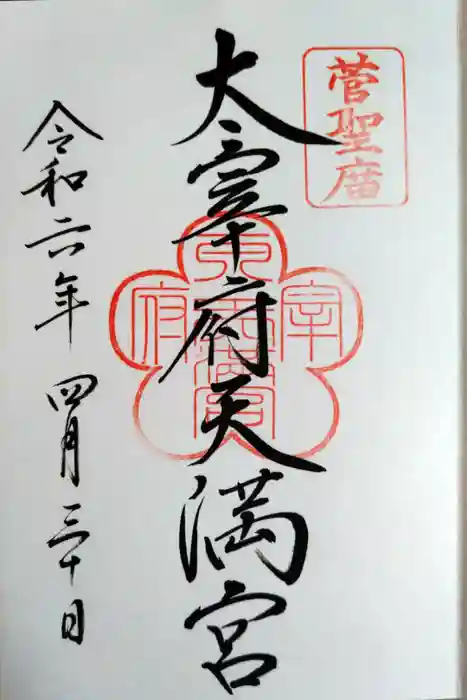 菅聖庿
太宰府天満宮
令和六年 四月三十日